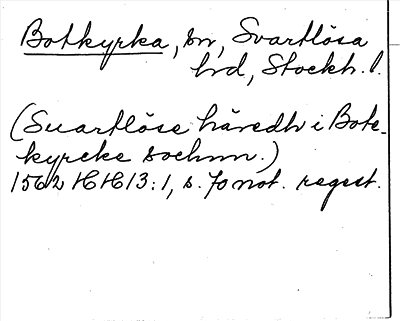 Botkyrka, sn, Svartlösa
hd, Stockh. l.
(Suartlöse häredh i Bote-
kyrcke sochnn.)
1562 HH 13:1, s. 70 not. regest.